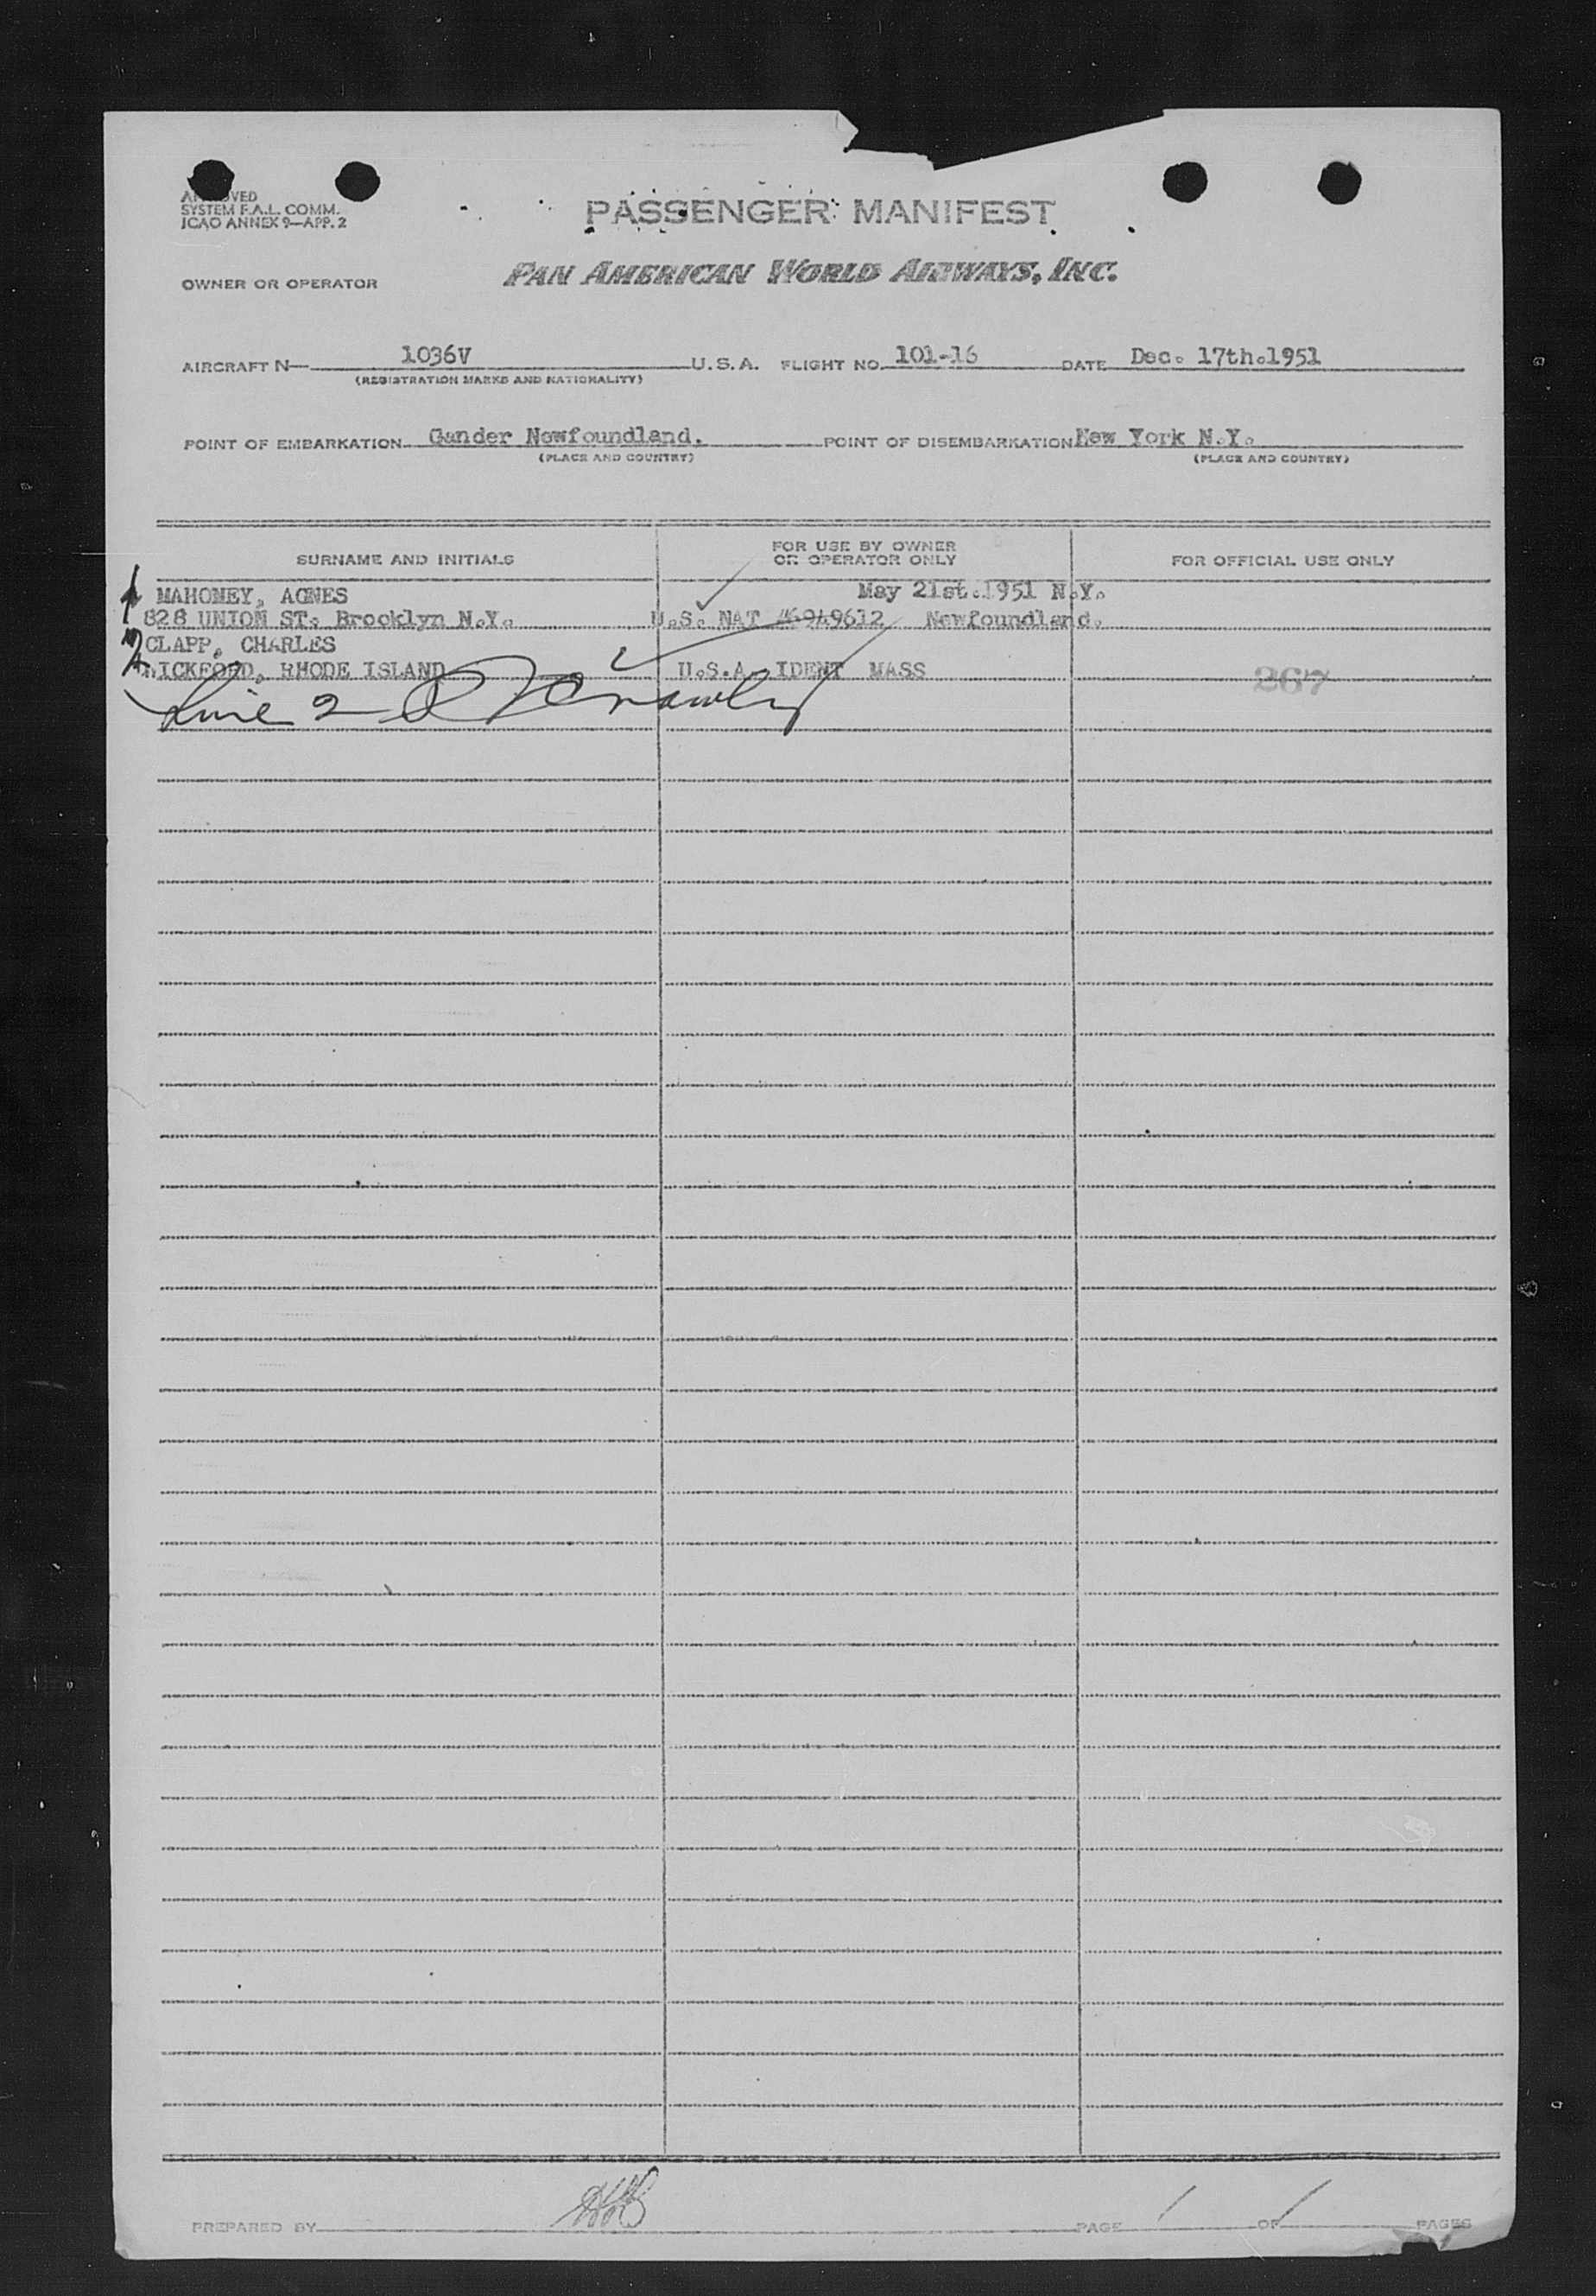 APPROVED
SYSTEM F.A.L. COMM.
ICAO ANNEX 9—APP. 2
PASSENGER MANIFEST
OWNER OR OPERATOR PAN AMERICAN WORLD AIRWAYS, INC.
AIRCRAFT N— 1036V U.S.A. FLIGHT NO. 101-16 DATE Dec. 17th.1951
(REGISTRATION MARKS AND NATIONALITY)
POINT OF EMBARKATION Gander Newfoundland. POINT OF DISEMBARKATION New York N.Y.
(PLACE AND COUNTRY) (PLACE AND COUNTRY)
SURNAME AND INITIALS FOR USE BY OWNER OR OPERATOR ONLY FOR OFFICIAL USE ONLY
1 MAHONEY, AGNES May 21st.1951 N.Y.
828 UNION ST. Brooklyn N.Y. U.S. NAT Newfoundland.
2 CLAPP, CHARLES
WICKFORD, RHODE ISLAND U.S.A. IDENT MASS 267
Line 2
PREPARED BY PAGE 1 OF 1 PAGES